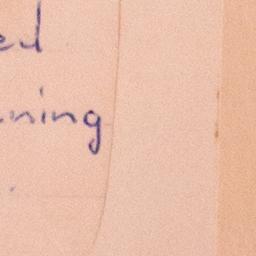 ed
ning